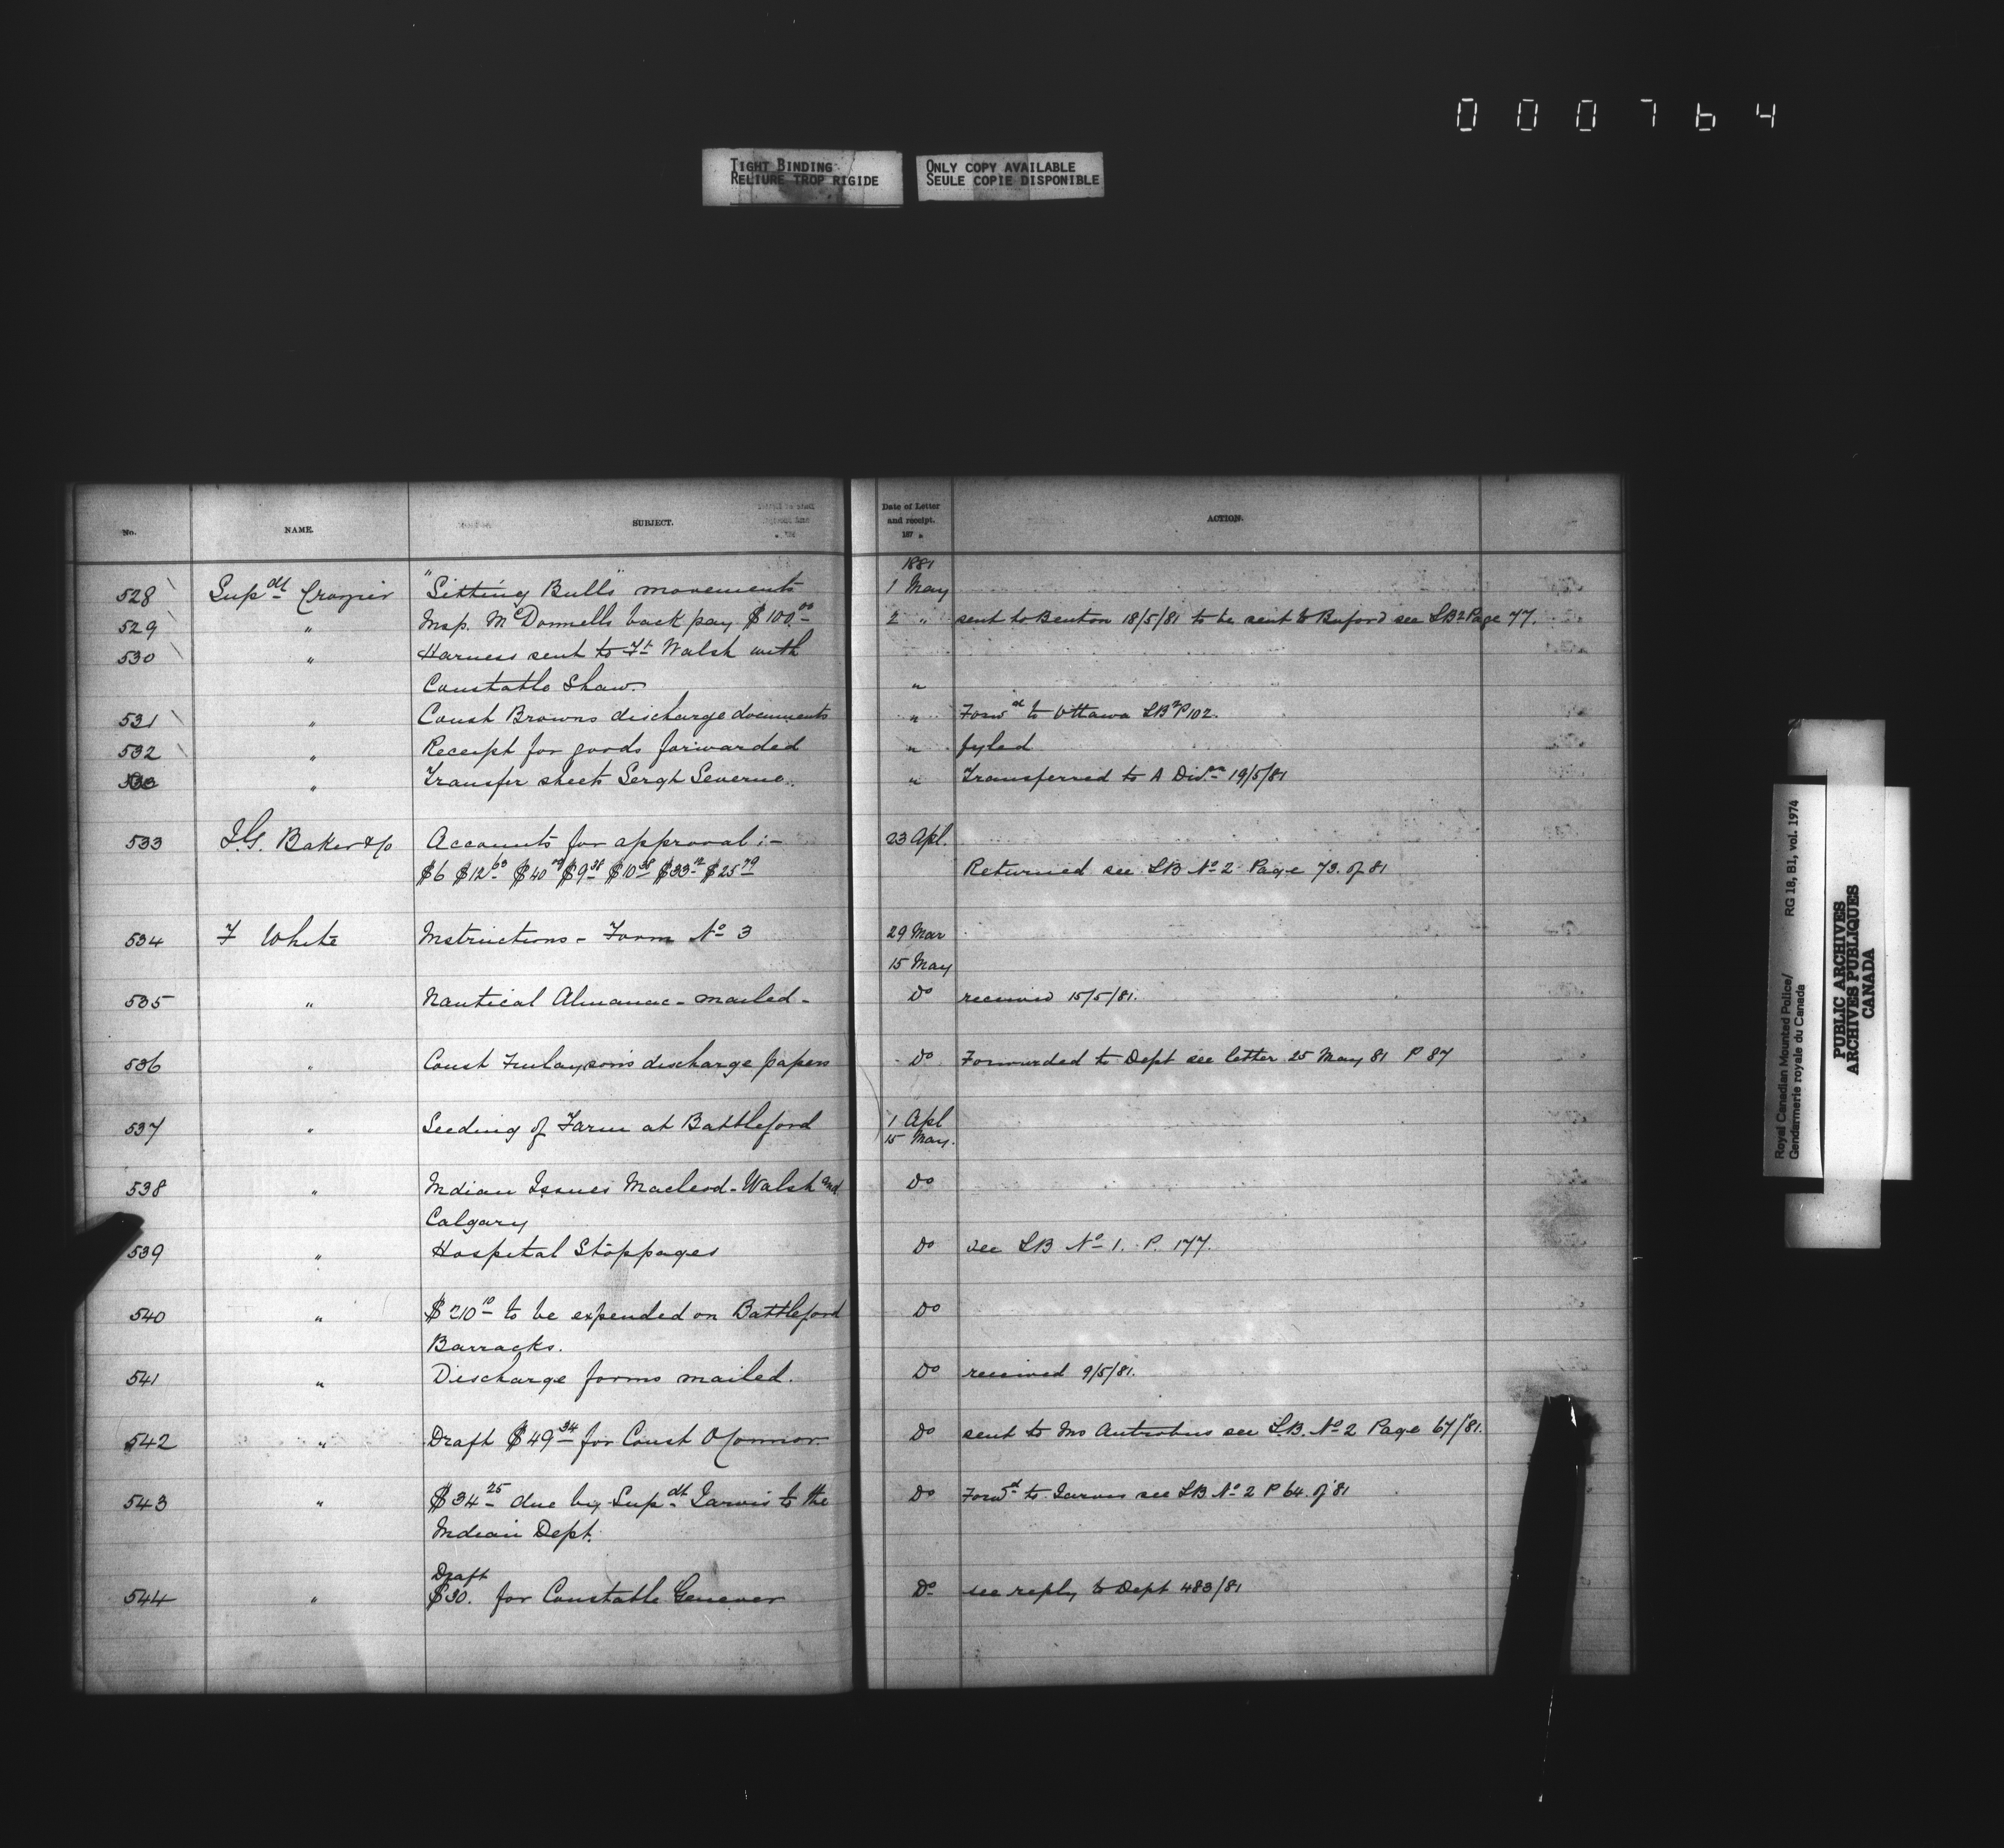 000764
TIGHT BINDING
RELIURE TROP RIGIDE
ONLY COPY AVAILABLE
SEULE COPIE DISPONIBLE
No. NAME. SUBJECT. Date of Letter and receipt. 187 ACTION.
1881
528 Supdt Crozier "Sitting Bulls" movements 1 May
529 " Insp. McDonnells back pay $100.00 2 " sent to Benton 18/5/81 to be sent to Buford see LB2 Page 77.
530 " Harness sent to Ft Walsh with
Constable Shaw. "
531 " Const Browns discharge documents " Forwd to Ottawa LB2 P102.
532 " Receipt for goods forwarded " fyled
" Transfer sheets Sergt Severne. " Transferred to A Divon 19/5/81
533 I.G. Baker & Co Accounts for approval :- 23 Apl.
$6 $12 63 $40 $9 38 $10 38 $33 12 $25 79 Returned see LB No 2 Page 73. of 81
534 F White Instructions - Form No 3 29 Mar
15 May
535 " Nautical Almanac - mailed - Do received 15/5/81.
536 " Const Finlaysons discharge papers Do Forwarded to Dept see letter 25 May 81 P 87
537 " Seeding of Farm at Battleford 1 Apl
15 May.
538 " Indian Issues Macleod - Walsh and Do
Calgary
539 " Hospital Stoppages Do see LB No 1. P. 177.
540 " $210 10 to be expended on Battleford Do
Barracks.
541 " Discharge forms mailed. Do received 9/5/81.
542 " Draft $49 34 for Const OConnor. Do sent to Antrobus see L.B. No 2 Page 67/81.
543 " $34 25 due by Supdt Jarvis to the Do Forwd to Jarvis see LB No 2 P 64. of 81
Indian Dept.
Draft
544 " $30. for Constable Genever Do see reply to Dept 483/81
Royal Canadian Mounted Police/ RG 18, B1, vol. 1974
Gendarmerie royale du Canada
PUBLIC ARCHIVES
ARCHIVES PUBLIQUES
CANADA